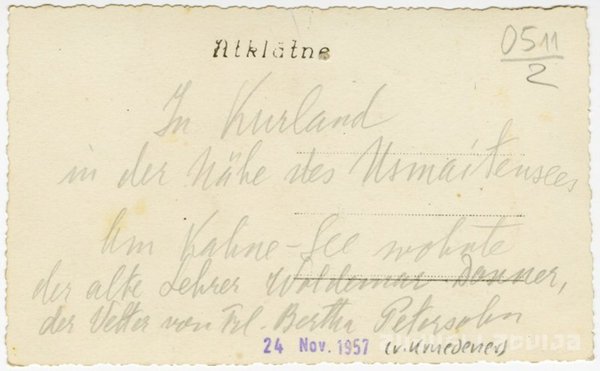 Atklātne
0511
2
In Kurland
in der Nähe des Usmaitensees
Am Kahne-See wohnte
der alte Lehrer Woldemar Donner,
der Vetter von Frl. Bertha Petersohn
24 Nov. 1957